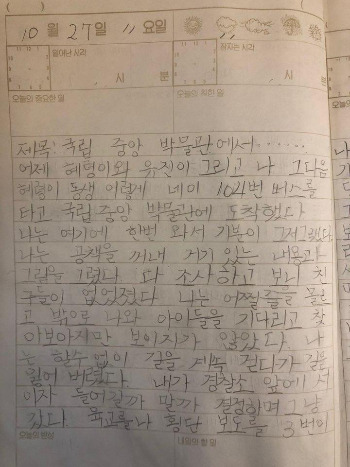 10 월 27 일 〃 요일
일어난 시각
잠자는 시각
시 분
시 분
오늘의 중요한 일
오늘의 착한 일
제목: 국립 중앙 박물관에서······
어제 혜령이와 유진이 그리고 나 그다음
혜령이 동생 이렇게 네이 104번 버스를
타고 국립중앙 박물관에 도착했다
나는 여기에 한번 와서 기분이 그저그랬다
나는 공책을 꺼내 거기 있는 내용과
그림을 그렸다 다 조사하고 보니 친
구들이 없었졌다. 나는 어찌할줄을 몰르
고 밖으로 나와 아이들을 기다리고 찾
아보아지만 보이지가 않았다. 나
는 할수없이 길을 계속 걷다가 길을
잃어 버렸다. 내가 경찰소 앞에서
이자 들어갈까 말까 결정하며 그냥
갔다. 육교를나 횡단 보도를 3번이
오늘의 반성
내일의 할 일